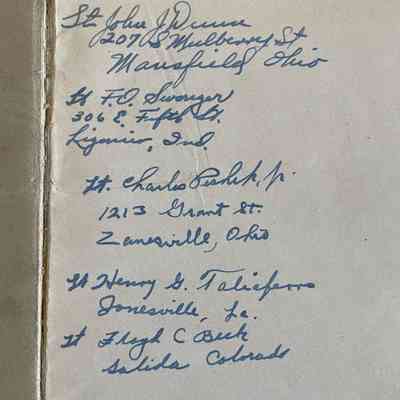 Lt John J Dunn
207 S Mulberry St
Mansfield, Ohio
Lt F.O. Swonger
306 E. Fifth St.
Ligonier, Ind.
Lt. Charles jr.
1213 Grant St.
Zanesville, Ohio
Lt Henry G. Taliaferro
Jonesville, La.
Lt C Beck
Salida Colorado